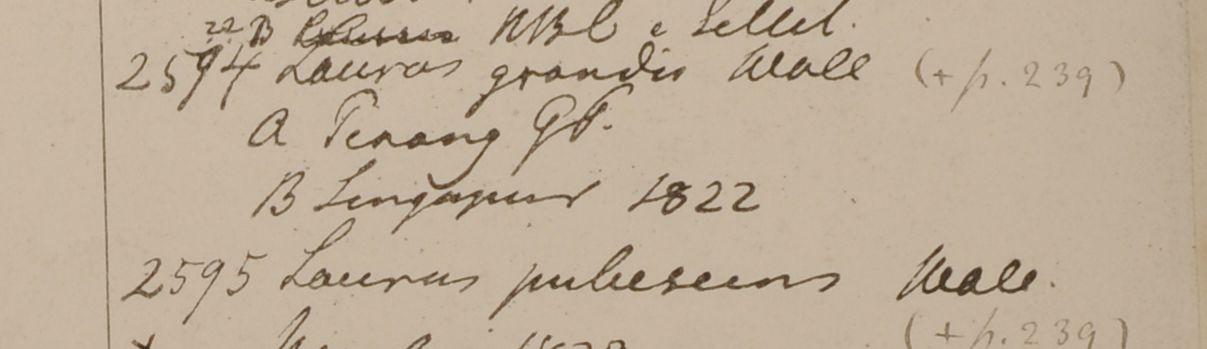 22 B HBC e
2594 Laurus grandis Wall (+ p. 239)
A Penang GP.
B Singapur 1822
2595 Laurus pubescens Wall.
(+ p. 239)